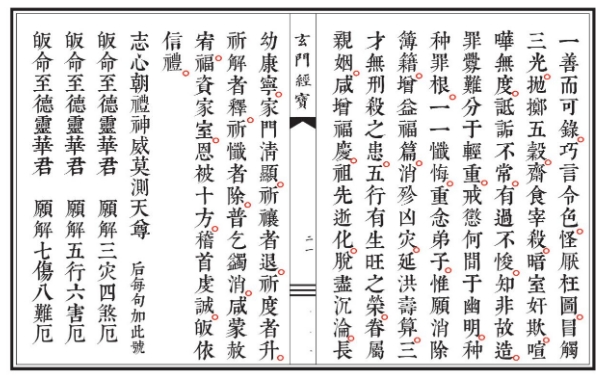 一善而可錄。巧言令色。怪厭枉圖。冒觸
三光。拋擲五穀。齋食宰殺。暗室奸欺。喧
嘩無度。詆詬不常。有過不悛。知非故造。
罪釁難分于輕重。戒懲何間于幽明。種
種罪根。一一懺悔。重念弟子。惟願消除
簿籍。增益福篇。消殄凶灾。延洪壽算。三
才無刑殺之患。五行有生旺之榮。眷屬
親姻。咸增福慶。祖先逝化。脫盡沉淪。長
玄門經寶
二一
幼康寧。家門清顯。祈禳者退。祈度者升。
祈解者釋。祈懺者除。普乞蠲消。咸蒙赦
宥。福資家室。恩被十方。稽首虔誠。皈依
信禮。
志心朝禮神威莫測天尊 后每句加此號
皈命至德靈華君 願解三灾四煞厄
皈命至德靈華君 願解五行六害厄
皈命至德靈華君 願解七傷八難厄